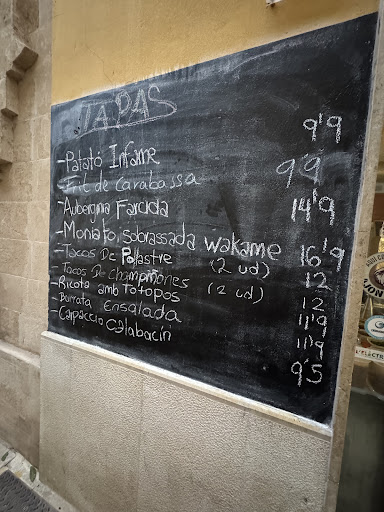 TAPAS
-Patató Infame 9'9
-Fric de Carabassa 9'9
-Aubergina Farcida 14'9
-Moniato, sobrassada wakame 16'9
-Tacos De Pollastre (2 ud) 12
-Tacos De Champiñones (2 ud) 12
-Ricota amb Totopos 11'9
-Burrata Ensalada 11'9
-Carpaccio Calabacín 9'5